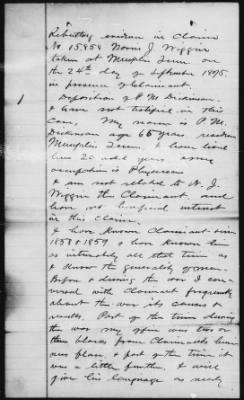 Rebutting evidence in Claim
No. 15,858 Norris J. Wiggin
taken at Memphis Tenn. on
the 24th day of September 1875.
in presence of claimant.
Deposition of P. M. Dickinson.
I have not testified in this
case, My name P. M.
Dickinson age 65 years residence
Memphis Tenn. & have lived
here 20 odd years, my
occupation is Physician
I am not related to N. J.
Wiggin the Claimant and
have no interest
in this claim.
I have known Claimant since
1858 & 1859 & have known him
as intimately all that time as
I know the generality of men.
Before & during the war I con-
versed with Claimant frequently
about the war its causes &
results. Part of the time during
the war my office was two or
three blocks from Claimants busi-
ness place, & part of the time it
was a little further, I will
give his language as near